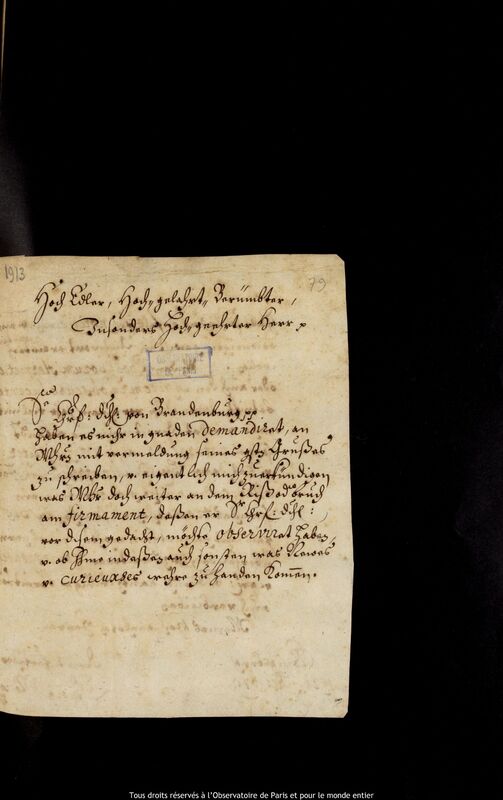 1913
79
Hoch Edler, Hoch-gelahrt-Berümbter,
Insonders Hoch-geehrter Herr p
Se Chrf: dchl: von Brandenburg pp
haben es mir in gnaden demandiret, an
MhHrn mit vermeldung seines gstn Grußes
zu schreiben, v. eigentlich mich zuerkundigen
was MhHr doch weiter an dem Riß oder bruch
am firmament, deßen er Sr Chrf: dchl:
vor disem gedacht, möchte observiret haben,
v. ob Ihme indeßen auch sonsten was Newes
v. curieuxses wehre zu handen kommen.
Tous droits réservés à l'Observatoire de Paris et pour le monde entier